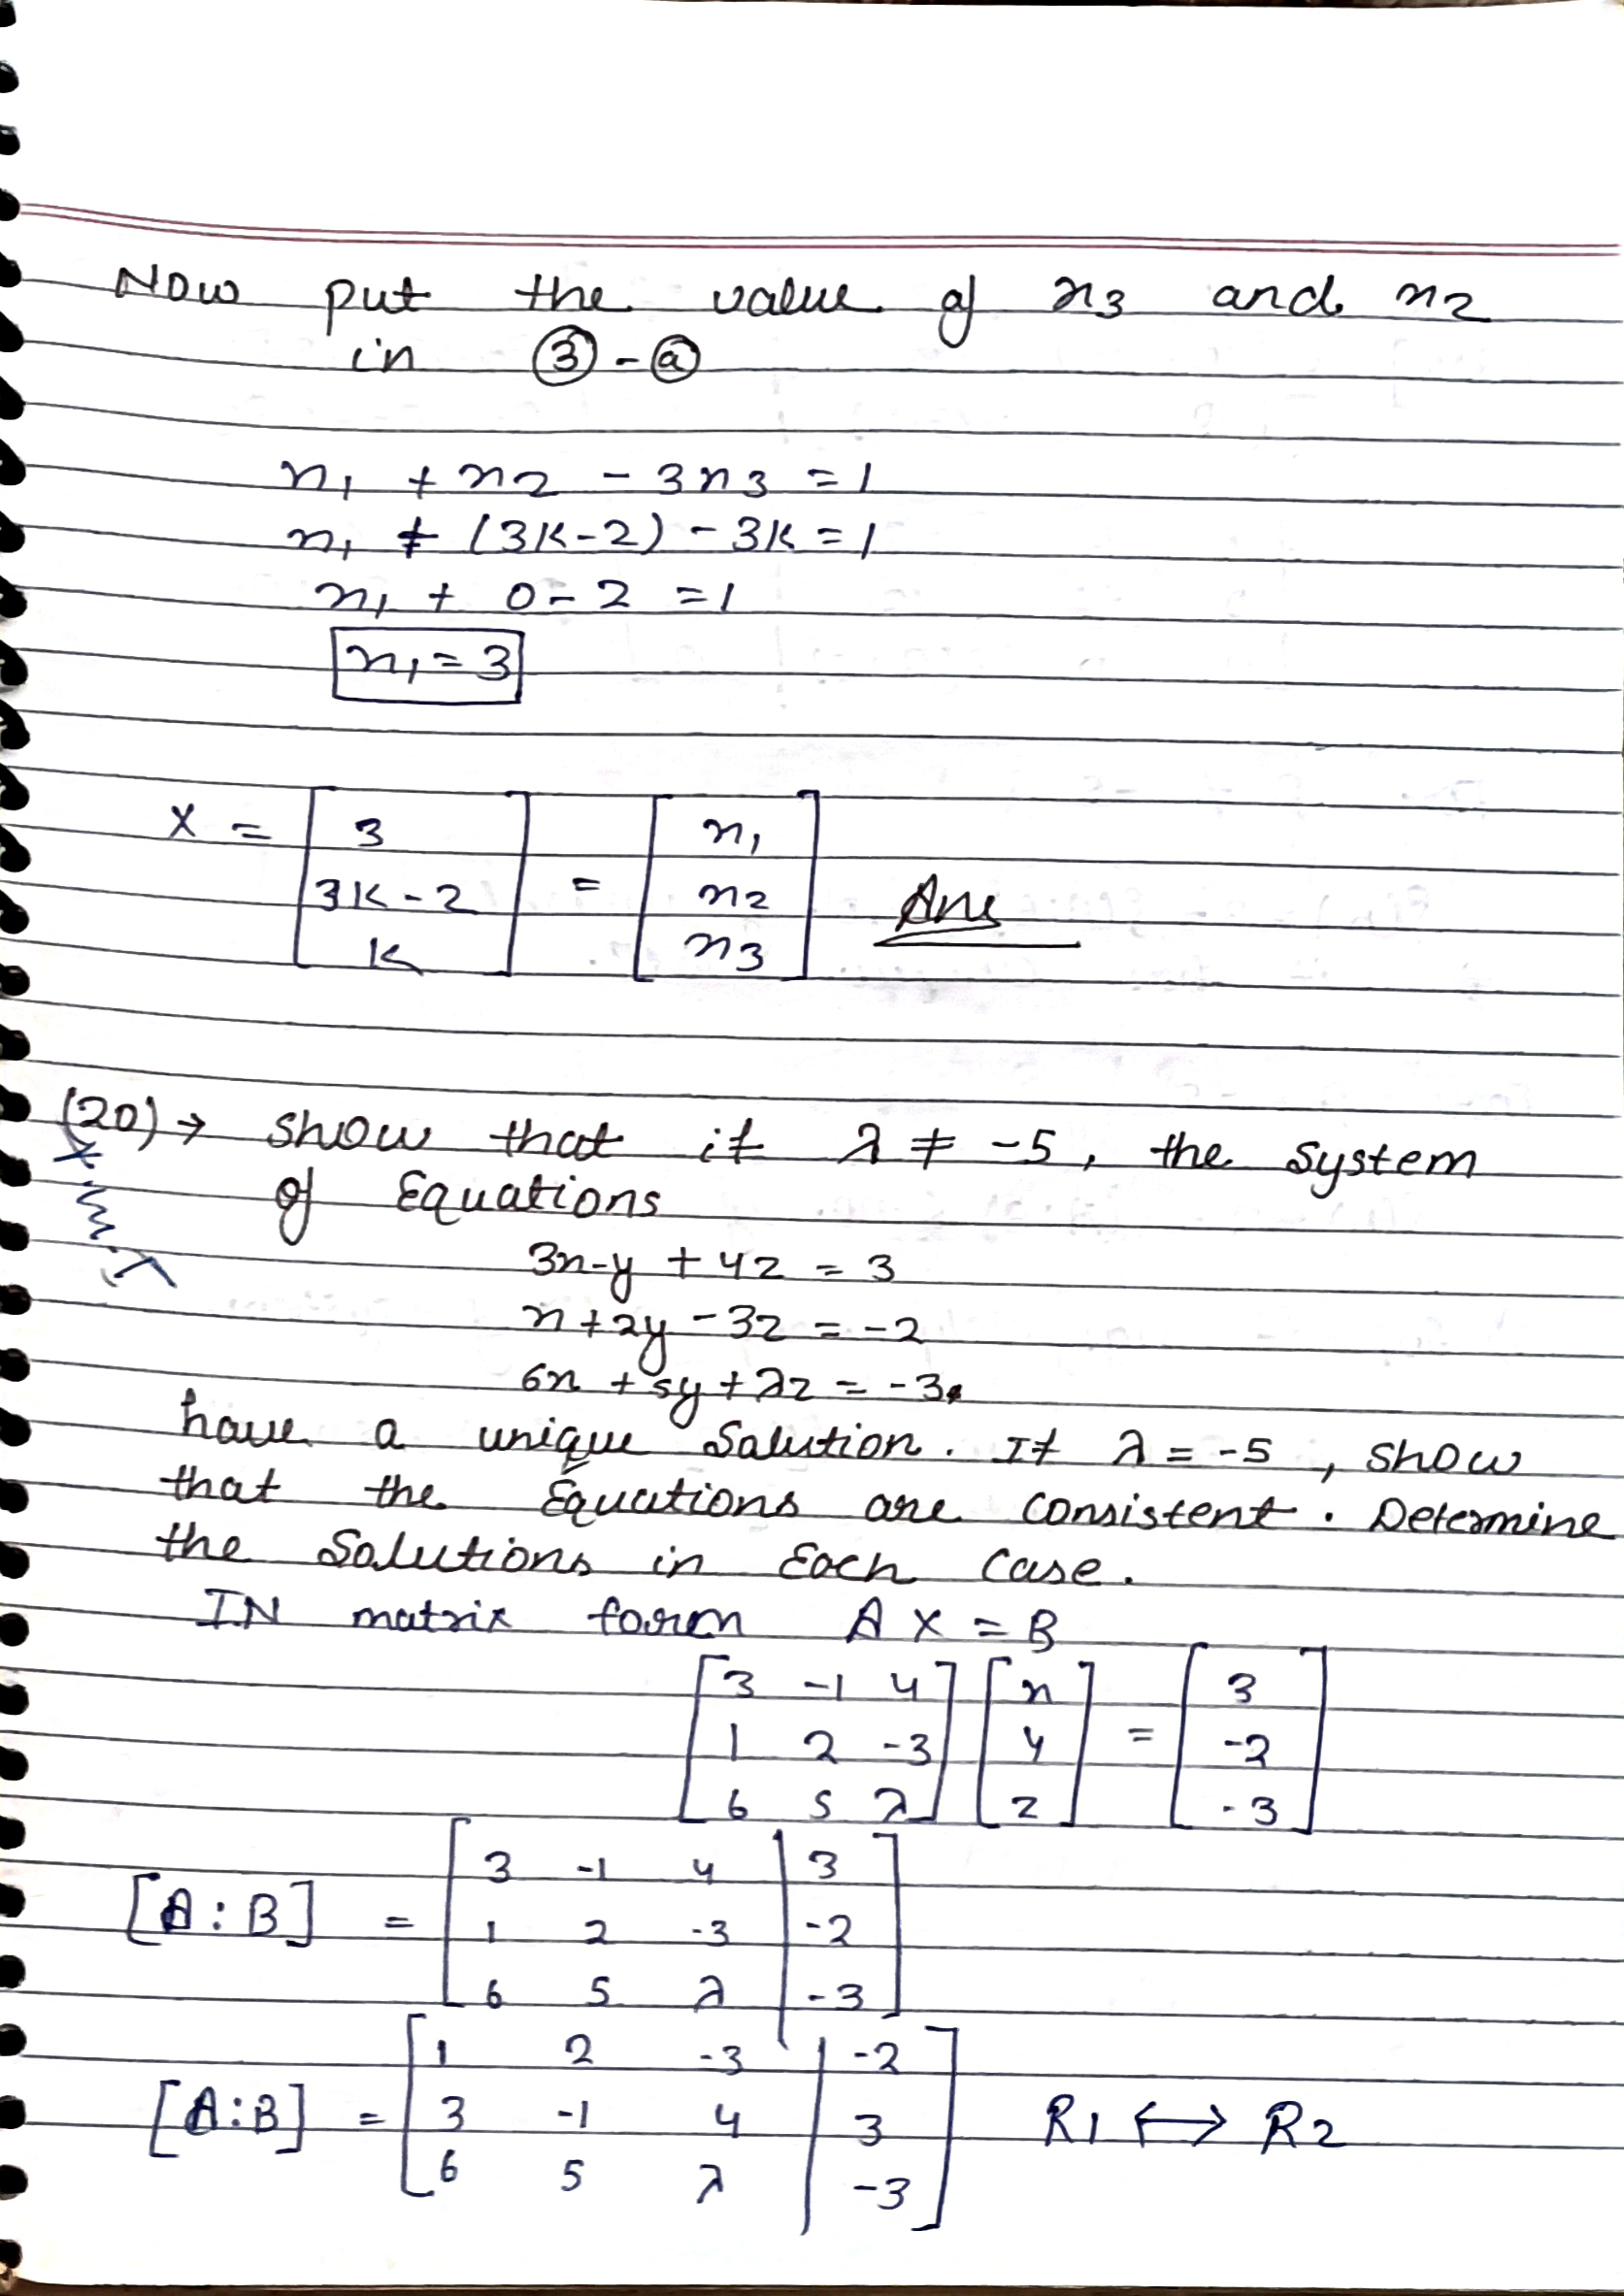 Now put the value of x3 and x2
in ③-ⓐ
x1 + x2 - 3x3 = 1
x1 + (3K-2) - 3K = 1
x1 + 0 - 2 = 1
x1 = 3
X = [3 3K-2 K] = [x1 x2 x3] Ans
(20)→ Show that if λ ≠ -5, the System
of Equations
3x-y + 4z = 3
x+2y -3z = -2
6x + 5y + λz = -3
have a unique Solution. If λ = -5, Show
that the Equations are Consistent. Determine
the Solutions in Each Case.
IN matrix form AX = B
[3 -1 4 [x [3
1 2 -3 y = -2
6 5 λ] z] -3]
[3 -1 4 | 3
[A:B] = 1 2 -3 | -2
6 5 λ | -3]
[1 2 -3 | -2
[A:B] = 3 -1 4 | 3 R1 ↔ R2
6 5 λ | -3]